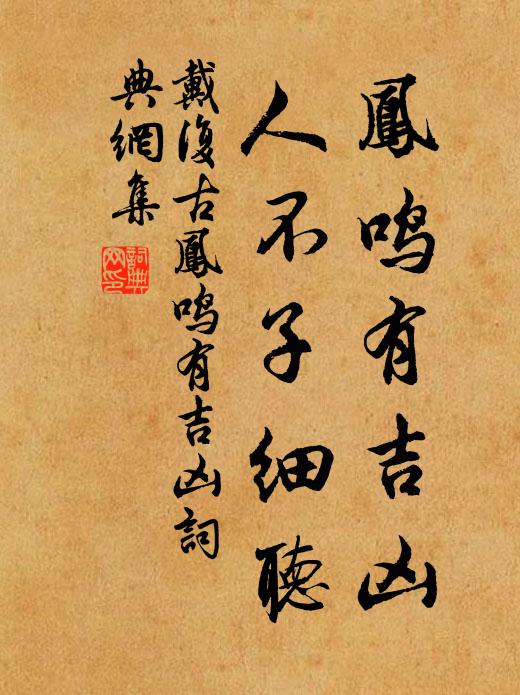 鳳鳴有吉凶
人不子細聽
戴復古鳳鳴有吉凶詞
典網集
詞典网印